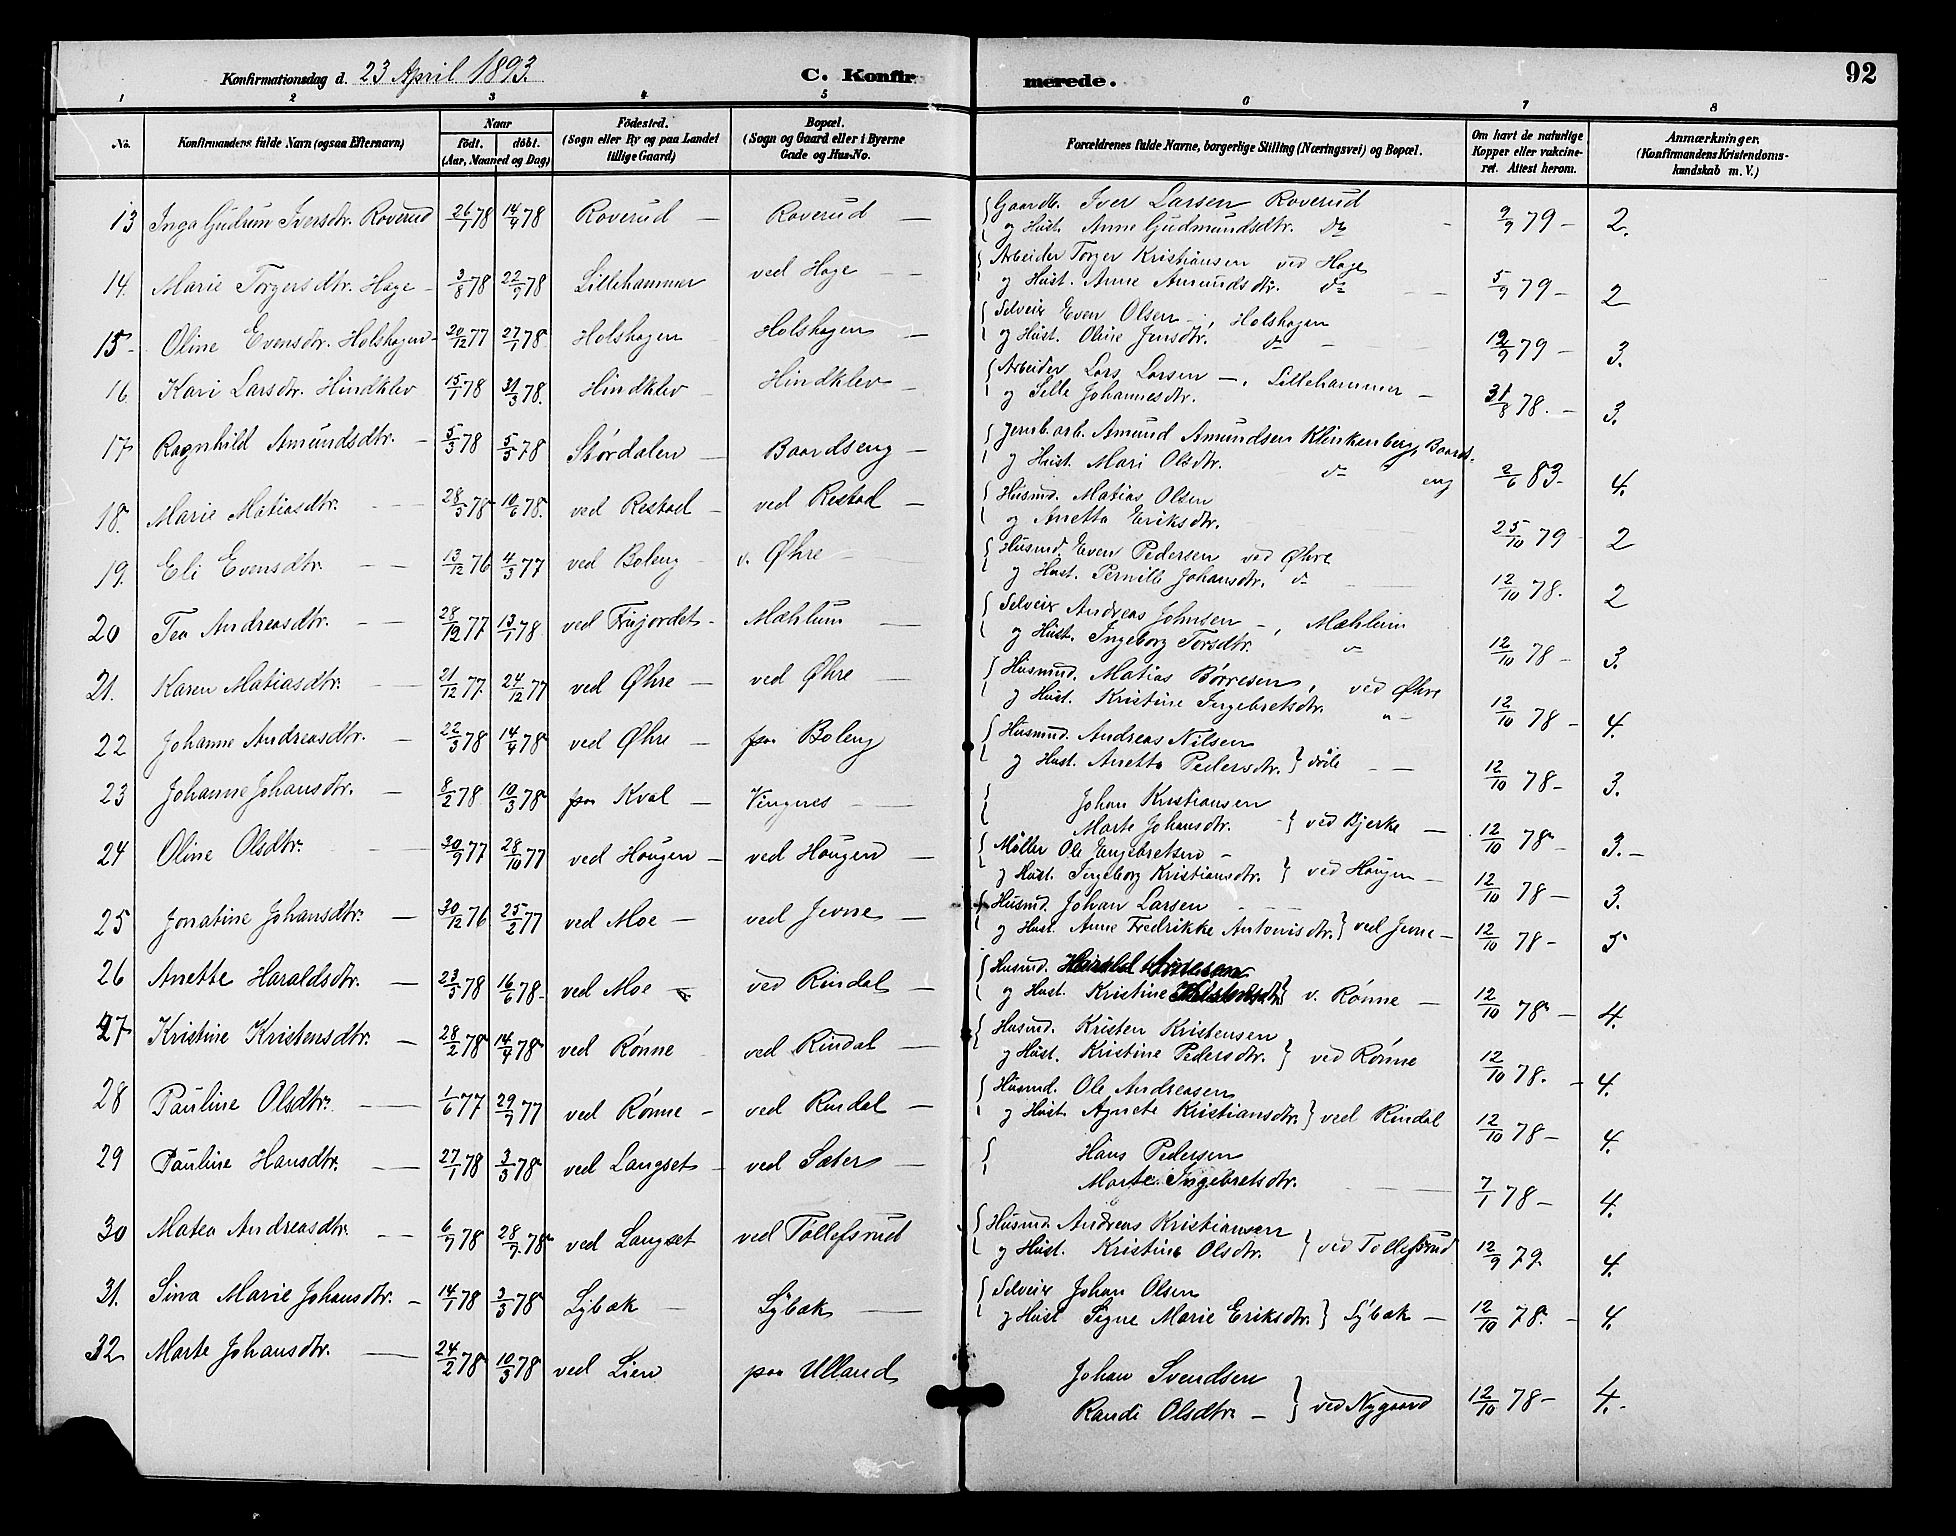 Konfirmationsdag d. 23 April 1893.
C. Konfirmerede.
92
1 2 3 4 5 6 7 8
No.
Konfirmandens fulde Navn (ogsaa Efternavn)
Naar
födt. döbt.
(Aar, Maaned og Dag)
Födested.
(Sogn eller By og paa Landet
tillige Gaard)
Bopæl.
(Sogn og Gaard eller i Byerne
Gade og Hus-No.
Forældrenes fulde Navne, borgerlige Stilling (Næringsvei) og Bopæl.
Om havt de naturlige
Kopper eller vakcine-
ret. Attest herom.
Anmærkninger.
(Konfirmandens Kristendoms-
kundskab m. V.)
13 Inga Gudrun Iversdtr. Roverud 26/1 78 14/4 78 Roverud – Roverud – Gaardb. Iver Larsen Roverud
og Hust. Anne Gudmundsdtr. do 9/9 79 – 2.
14. Marie Torgersdtr. Hage – 3/8 78 22/9 78 Lillehammer ved Hage – Arbeider Torger Kristiansen ved Hage
og Hust. Anne Amundsdtr. do 5/9 79 – 2
15 Oline Evensdtr. Holshagen 20/12 77 27/1 78 Holshagen Holshagen – Selveier Even Olsen –, Holshagen
og Hust. Oline Jensdtr. do 12/9 79 – 3.
16 Kari Larsdtr. Hindklev 15/1 78 31/3 78. Hindklev – Hindklev – Arbeider Lars Larsen –, Lillehammer
og Sille Johannesdtr. – 31/8 78. – 3.
17 Ragnhild Amundsdtr. – 5/3 78 5/5 78 Stórdalen – Baardseng – Jernb. arb. Amund Amundsen Klinkenberg, Baards-
og Hust. Mari Olsdtr. do eng 2/6 83. 4.
18. Marie Matiasdtr. – 28/5 78 10/6 78. ved Restad – ved Restad – Husmd. Matias Olsen
og Anetta Eriksdtr. 25/10 79 2
19. Eli Evensdtr. – 13/12 76 4/3 77 ved Boleng v. Øhre – Husmd. Even Pedersen ved Øhre
og Hust. Pernille Johansdtr. do 12/10 78. 2
20 Tea Andreasdtr. – 28/12 77 13/1 78 ved Frujordet – Mæhlum – Selveier Andreas Johnsen –, Mæhlum
og Hust. Ingeborg Torsdtr. do 12/10 78 – 3.
21. Karen Matiasdtr. – 21/12 77. 24/12 77 ved Øhre – ved Øhre – Husmd. Matias Börresen, ved Øhre
og Hust. Kristine Ingebretsdtr. 12/10 78 – 4.
22 Johanne Andreasdtr. – 22/3 78 14/4 78 ved Øhre – paa Boleng Husmd. Andreas Nilsen
og Hust. Anetta Pedersdtr. 12/10 78 – 3.
23 Johanne Johansdtr. – 8/2 78 10/3 78 paa Kval – Vingnes – Johan Kristiansen
Marte Johansdtr. – ved Bjerke – 12/10 78 – 3. –
24 Oline Olsdtr. – 30/9 77 28/10 77 ved Haugen – ved Haugen – Möller Ole Engebretsen –
og Hust. Ingeborg Kristiansdtr. ved Haugen – 12/10 78 – 3.
25 Jonatine Johansdtr. – 30/12 76 25/2 77 ved Moe – ved Jevne – Husmd. Johan Larsen
og Hust. Anne Fredrikke Antonisdtr. ved Jevne – 12/10 78 – 5
26 Anette Haraldsdtr. – 23/5 78 16/6 78. ved Moe – ved Rindal – Husmd. Harald
og Hust. Kristine v. Rønne – 12/10 78 – 4.
27 Kristine Kristensdtr. – 28/2 78 14/4 78 ved Rønne ved Rindal – Husmd. Kristen Kristensen
og Hust. Kristine Pedersdtr. ved Rønne 12/10 78. – 4.
28 Pauline Olsdtr. – 1/6 77 29/7 77 ved Rønne – ved Rindal – Husmd. Ole Andreasen
og Hust. Agnete Kristiansdtr. ved Rindal 12/10 78 – 4.
29 Pauline Hansdtr. – 27/1 78 3/3 78 ved Langset – ved Sæter – Hans Pedersen
Marte Ingebretsdtr. – 7/1 78 – 4.
30 Matea Andreasdtr. – 6/7 78 28/7 78 ved Langset ved Tollefsrud Husmd. Andreas Kristiansen
og Hust. Kristine Olsdtr. ved Tollefsrud 12/9 79. 4.
31. Sina Marie Johansdtr. – 14/1 78 3/3 78 Lybæk – Lybæk – Selveier Johan Olsen
og Hust Signe Marie Eriksdtr. Lybæk – 12/10 78. – 4.
32 Marte Johansdtr. – 24/2 78 10/3 78 ved Lien paa Ulland Johan Svendsen
Randi Olsdtr. – ved Nygaard 12/10 78 – 4. –